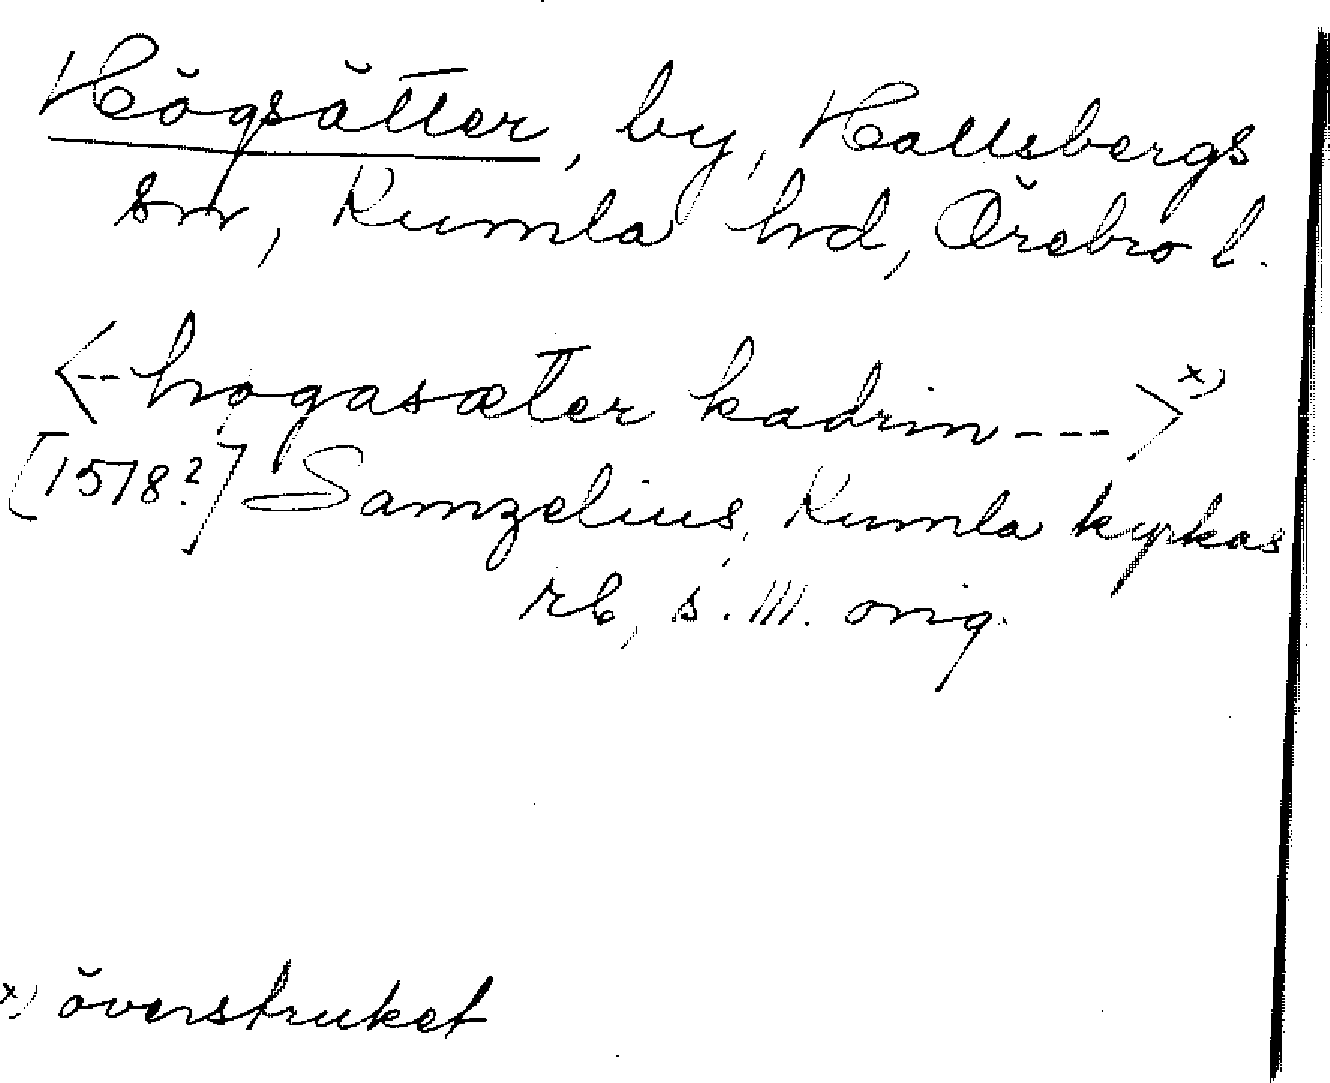 Högsätter, by, Hallsbergs
sn, Kumla hd, Örebro l.
<-- hogasæter kadrin --->x)
[1578?] Samzelius, Kumla kyrkas
rb, s. 111. orig.
x) överstruket